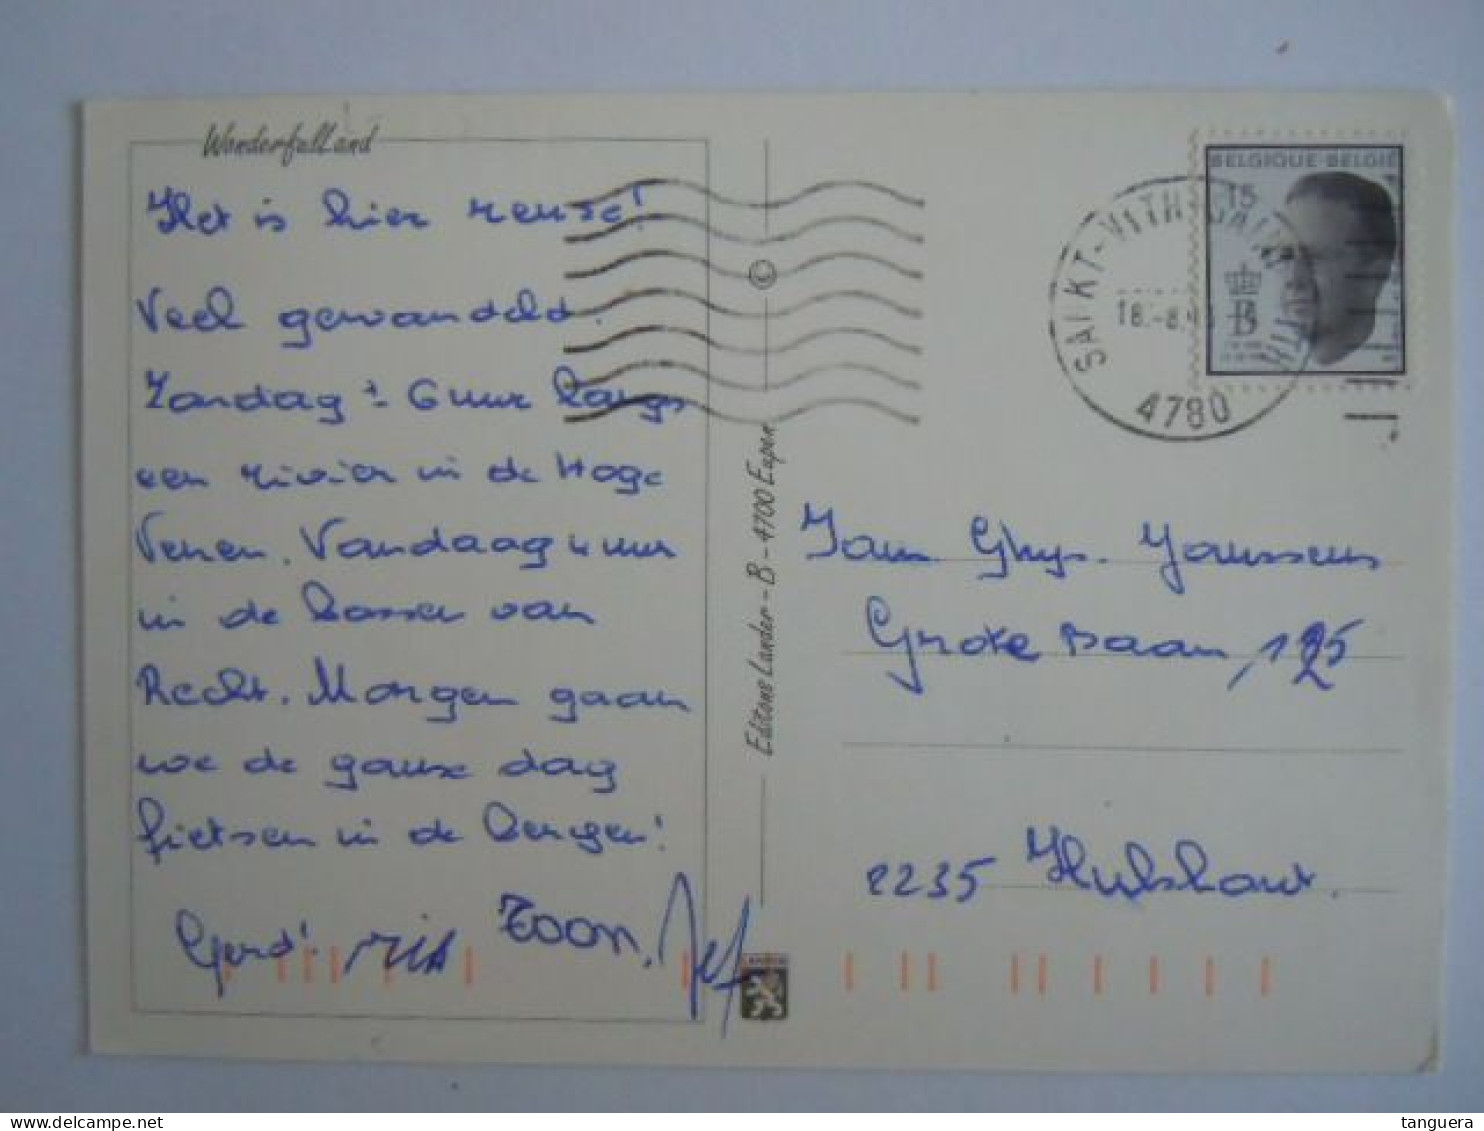 Wonderfulland
Het is hier reuse!
Veel gewandeld.
Zondag ± 6 uur langs
een rivier in de Hoge
Venen. Vandaag 4 uur
in de bossen van
Recht. Morgen gaan
we de ganse dag
fietsen in de bergen!
Gerd! Ria Toon. Jef
©
Editons Lander - B - 4700 Eupen
LANDER
BELGIQUE-BELGIË
15
B
SANKT-VITH
18.-8.
4780
Fam Ghys. Janssens
Grote Baan, 125
2235 Hulshout.
tanguera